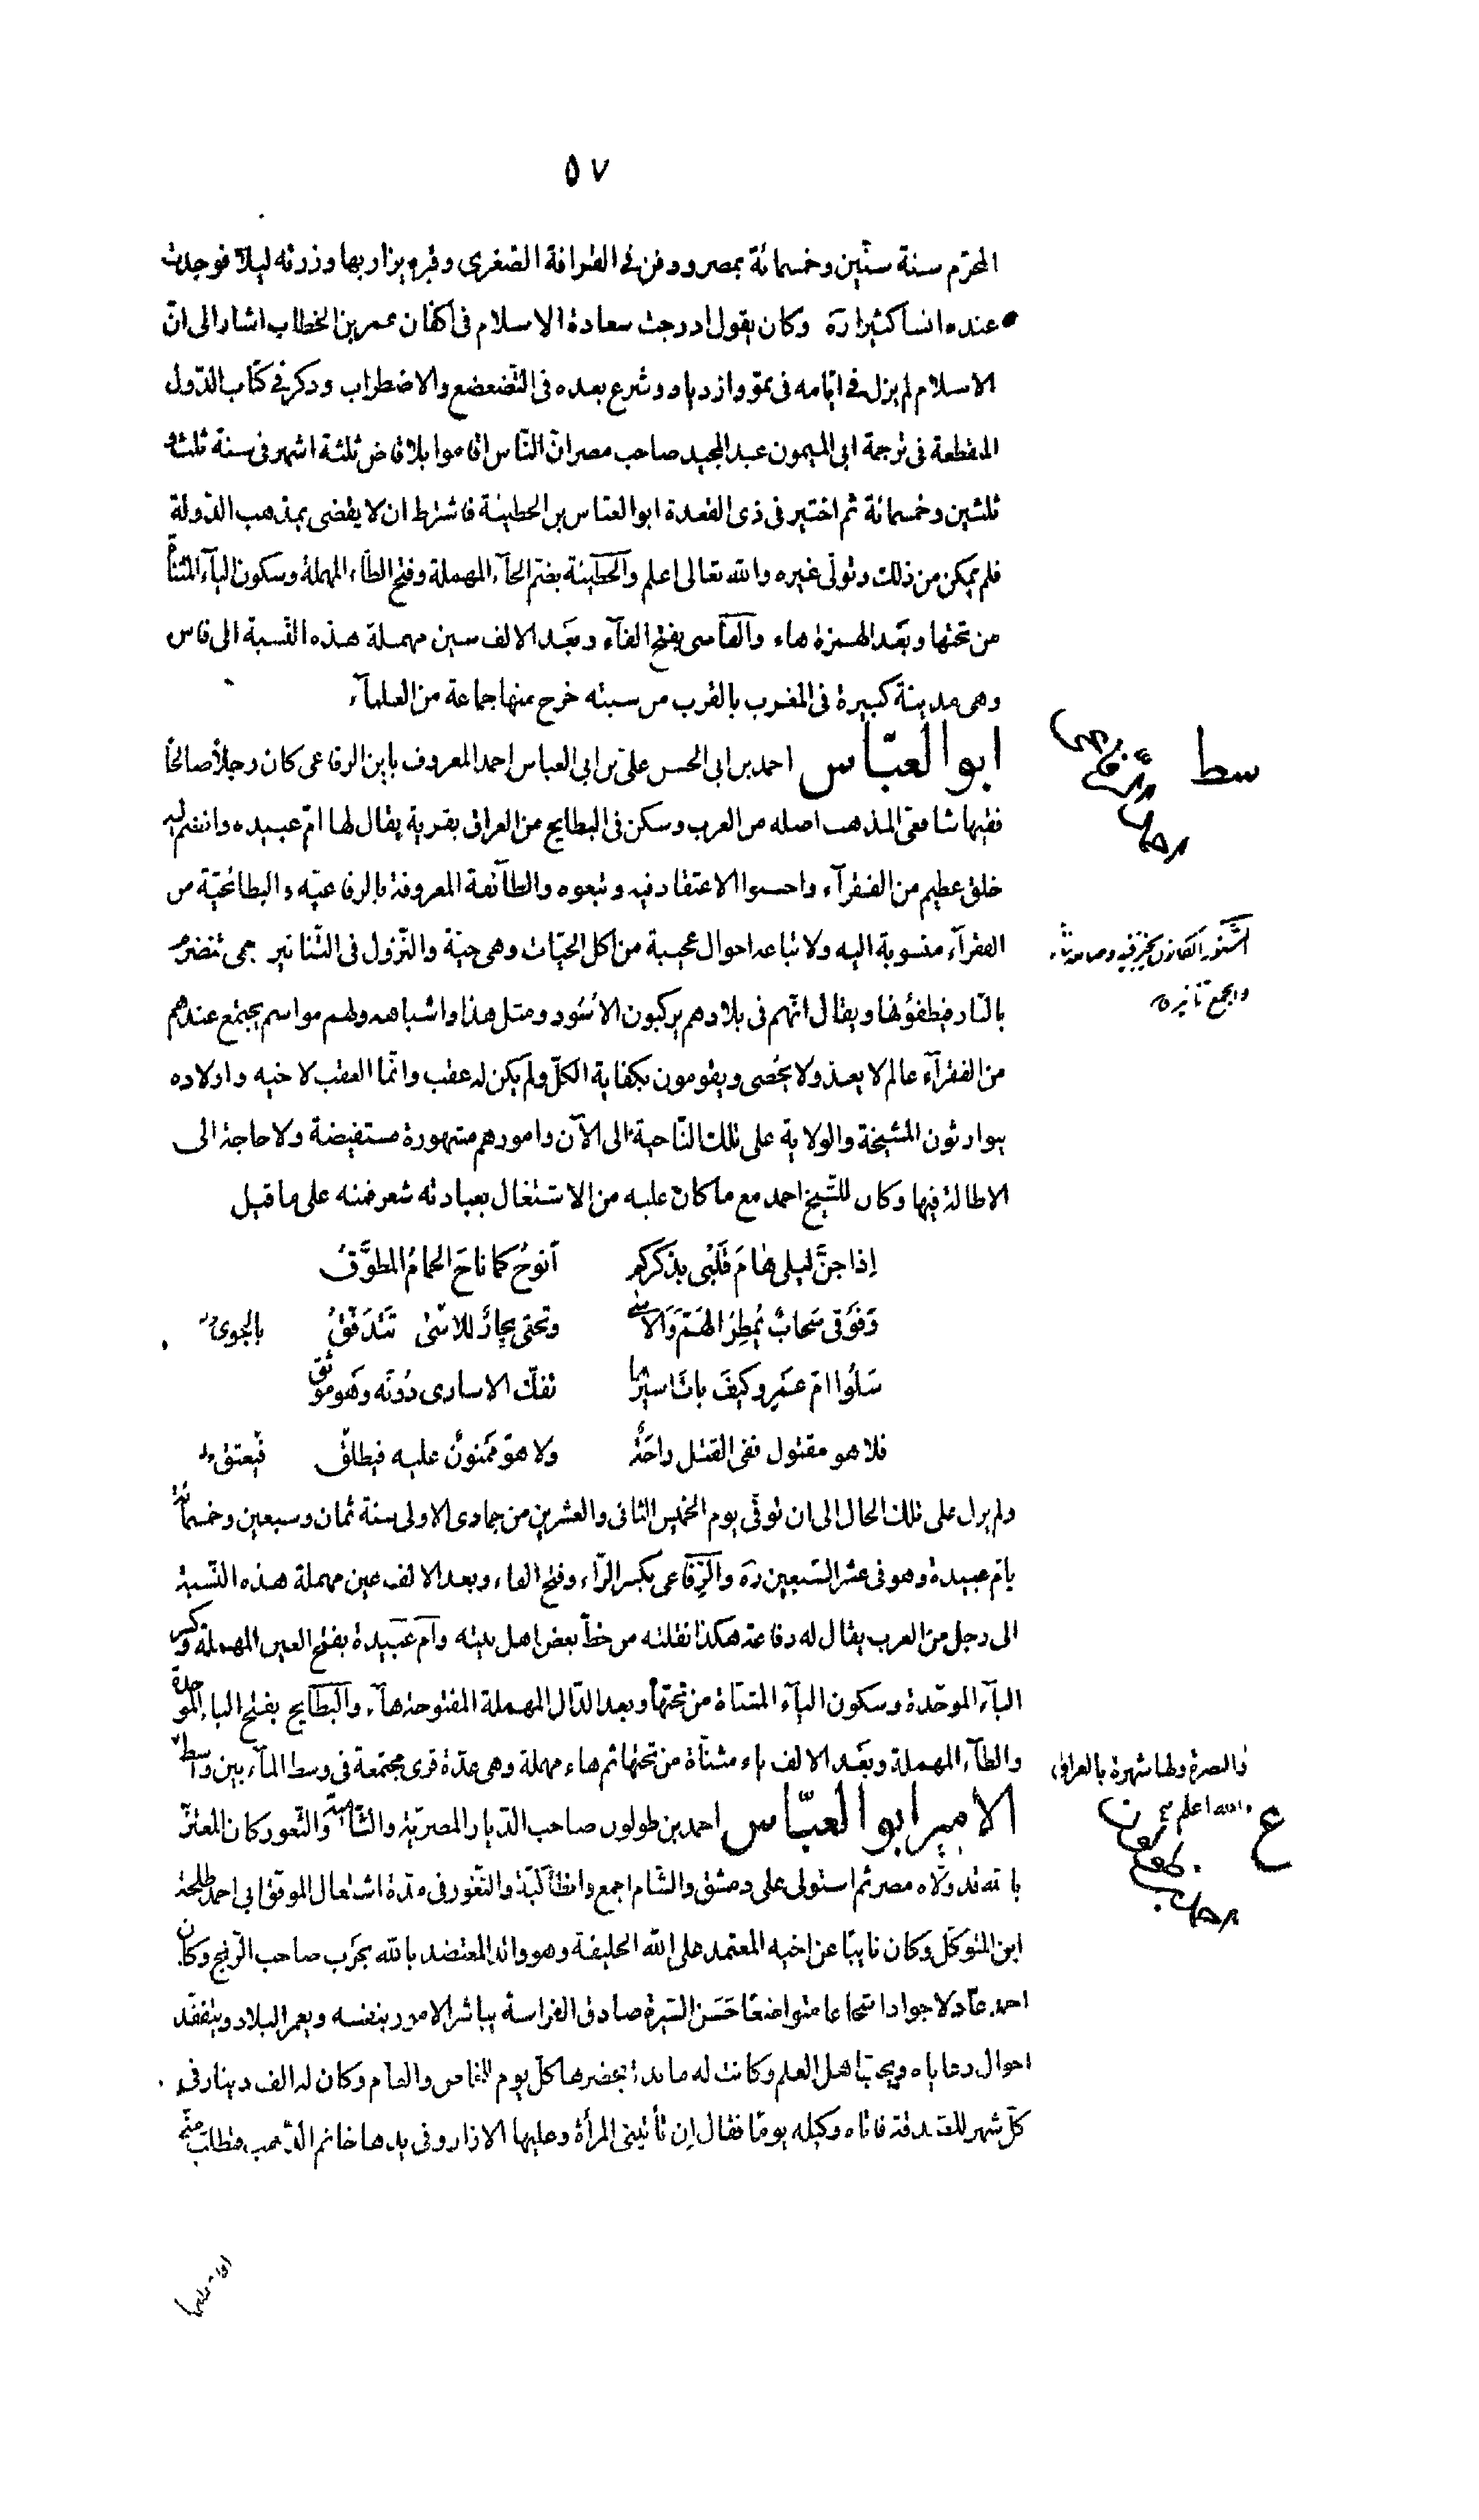 ٥٧
المحرّم سنة ستّين وخمسمائة بمصر ودفن فى القرافة الصّغرى وقبره يزار بها وزرته ليلا فوجدت
عنده انسا كثيرا ره وكان يقول ادرجت سعادة الاسلام فى اكفان عمر بن الخطاب اشار الى انّ
الاسلام لم يزل فى ايّامه فى نموّ وازدياد وشرع بعده فى التّضعضع والاضطراب وذكر فى كتاب الدّول
المقطعة فى ترجمة ابى الميمون عبد المجيد صاحب مصر انّ النّاس اقاموا بلا قاض ثلثة اشهر فى سنة ثلث و
ثلثين وخمسمائة ثم اختير فى ذى القعدة ابو العبّاس بن الحطيئة فاشترط ان لا يقضى بمذهب الدّولة
فلم يمكن من ذلك وتولّى غيره والله تعالى اعلم والحطيئة بضمّ الحآء المهملة وفتح الطّاء المهملة وسكون اليآء المثنّاة
من تحتها وبعد الهمزة هاء والفاسى بفتح الفآء وبعد الالف سين مهملة هذه النّسبة الى فاس
وهى مدينة كبيرة فى المغرب بالقرب من سبته خرج منها جماعة من العلمآء
سط
ابو العبّاس احمد بن ابى الحسن علىّ بن ابى العباس احمد المعروف بابن الرفاعى كان رجلاً صالحًا
احمد الرّفاعى
فقيها شافعى المذهب اصله من العرب وسكن فى البطايح من العراق بقرية يقال لها امّ عبيده وانضم اليه
خلق عظيم من الفقرآء واحسنوا الاعتقاد فيه وتبعوه والطّآئفة المعروفة بالرفاعيّه والبطائحيّة من
الفقرآء منسوبة اليه ولاتباعه احوال عجيبة من اكل الحيّات وهى حيّة والنّزول فى التّنانير وهى تتضرّم
التّنّور الكانون يخبز فيه
والجمع تنانير
بالنّار فيطفؤنها ويقال انّهم فى بلادهم يركبون الاسُود ومثل هذا واشباهه ولهم مواسم يجتمع عندهم
من الفقرآء عالم لا يعدّ ولا يحُصى ويقومون بكفاية الكلّ ولم يكن له عقب وانّما العقب لاخيه واولاده
يتوارثون المشيخة والولاية على تلك النّاحية الى الآن وامورهم مشهورة مستفيضة ولا حاجة الى
الاطالة فيها وكان للشّيخ احمد مع ما كان عليه من الاشتغال بعبادته شعر فمنه على ما قيل
إذا جنَّ ليلى هامَ قلْبى بذكركم أنوحُ كما ناحَ الحمامُ المطوّقُ
وَفَوقى سَحابٌ يُمطِرُ الهَمّ وَالاسى وتحتى بحارٌ للاسٰى تتدفّقُ بالجوى
سَلُوا امّ عَمرو كيفَ باتَ اسيرُها تفكّ الاسارى دُونَه وهو موثَق
فلا هو مقتول ففى القتل راحَةٌ ولا هو ممنونٌ عليه فيطلَقُ فيعتق
ولم يزل على تلك الحال الى ان توفّى يوم الخميس الثانى والعشرين من جمادى الاولى سنة ثمان وسبعين وخمسمائة
بامّ عبيدة وهو فى عشر السّبعين ره والرِّفاعى بكسر الرّآء وفتح الفاء وبعد الالف عين مهملة هذه النّسبة
الى رجل من العرب يقال له رفاعة هكذا نقلته من خطّ بعض اهل بيته وامّ عَبيدة بفتح العين المهملة وكسر
البآء الموحّدة وسكون اليآء المثنّاة من تحتها وبعد الدّال المهملة المفتوحة هآء والبطايح بفتح الباء الموحدة
والطآء المهملة وبعد الالف ياء مثنّاة من تحتها ثم حاء مهملة وهى عدّة قرى مجتمعة فى وسط المآء بين واسط
والبصرة ولها شهرة بالعراق
والله اعلم
ع
الامير ابو العبّاس احمد بن طولون صاحب الدّيار المصريّة والشّاميّة والثّغور كان المعتزّ
احمد بن طولون
بالله قد ولّاه مصر ثم استولى على دمشق والشّام اجمع وانطاكيّة والثّغور فى مدّة اشتغال الموفّق ابى احمد طلحة
ابن المتوكّل وكان نايبًا عن اخيه المعتمد على الله الخليفة وهو والد المعتضد بالله بحرَب صاحب الزّنج وكان
احمد عادلا جوادا شجاعا متواضعًا حَسَن السّيرة صادق الفراسة يباشر الامور بنفسه ويعمر البلاد ويتفقّد
احوال رعاياه ويحبّ اهل العلم وكانت له مايدة يحضرها كلّ يوم الخاصّ والعام وكان له الف دينار فى
كلّ شهر للصّدقة فاتاه وكيله يومًا فقال اِن تأتينى المرأة وعليها الازار وفى يدها خاتم الذّهب فتطلب منّى